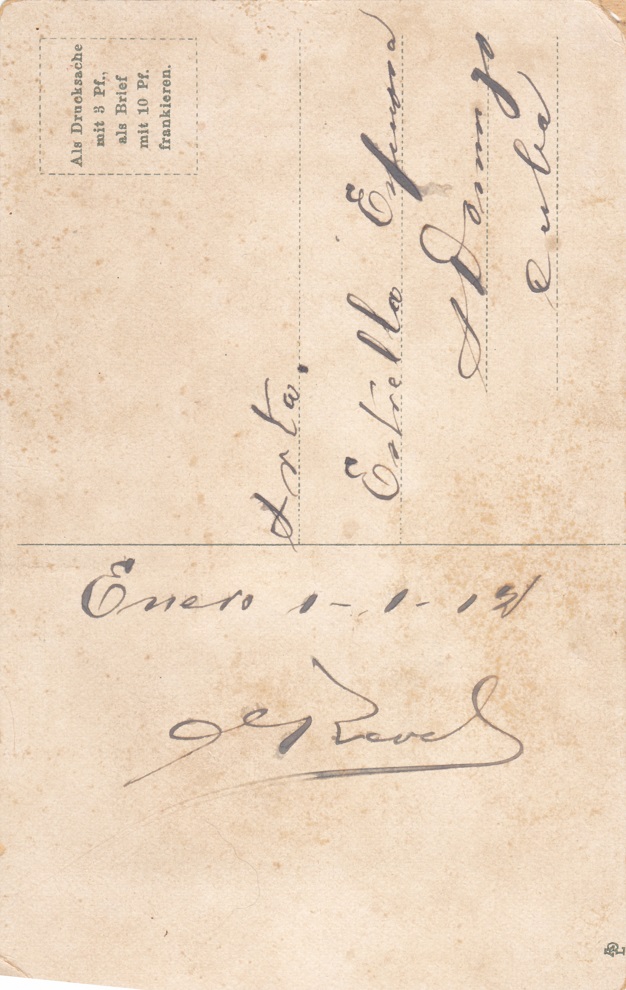 Als Drucksache
mit 3 Pf.,
als Brief
mit 10 Pf.
frankieren.
Srta.
Estrella Espinosa
Sto Domingo
Cuba
Enero 1-1-12